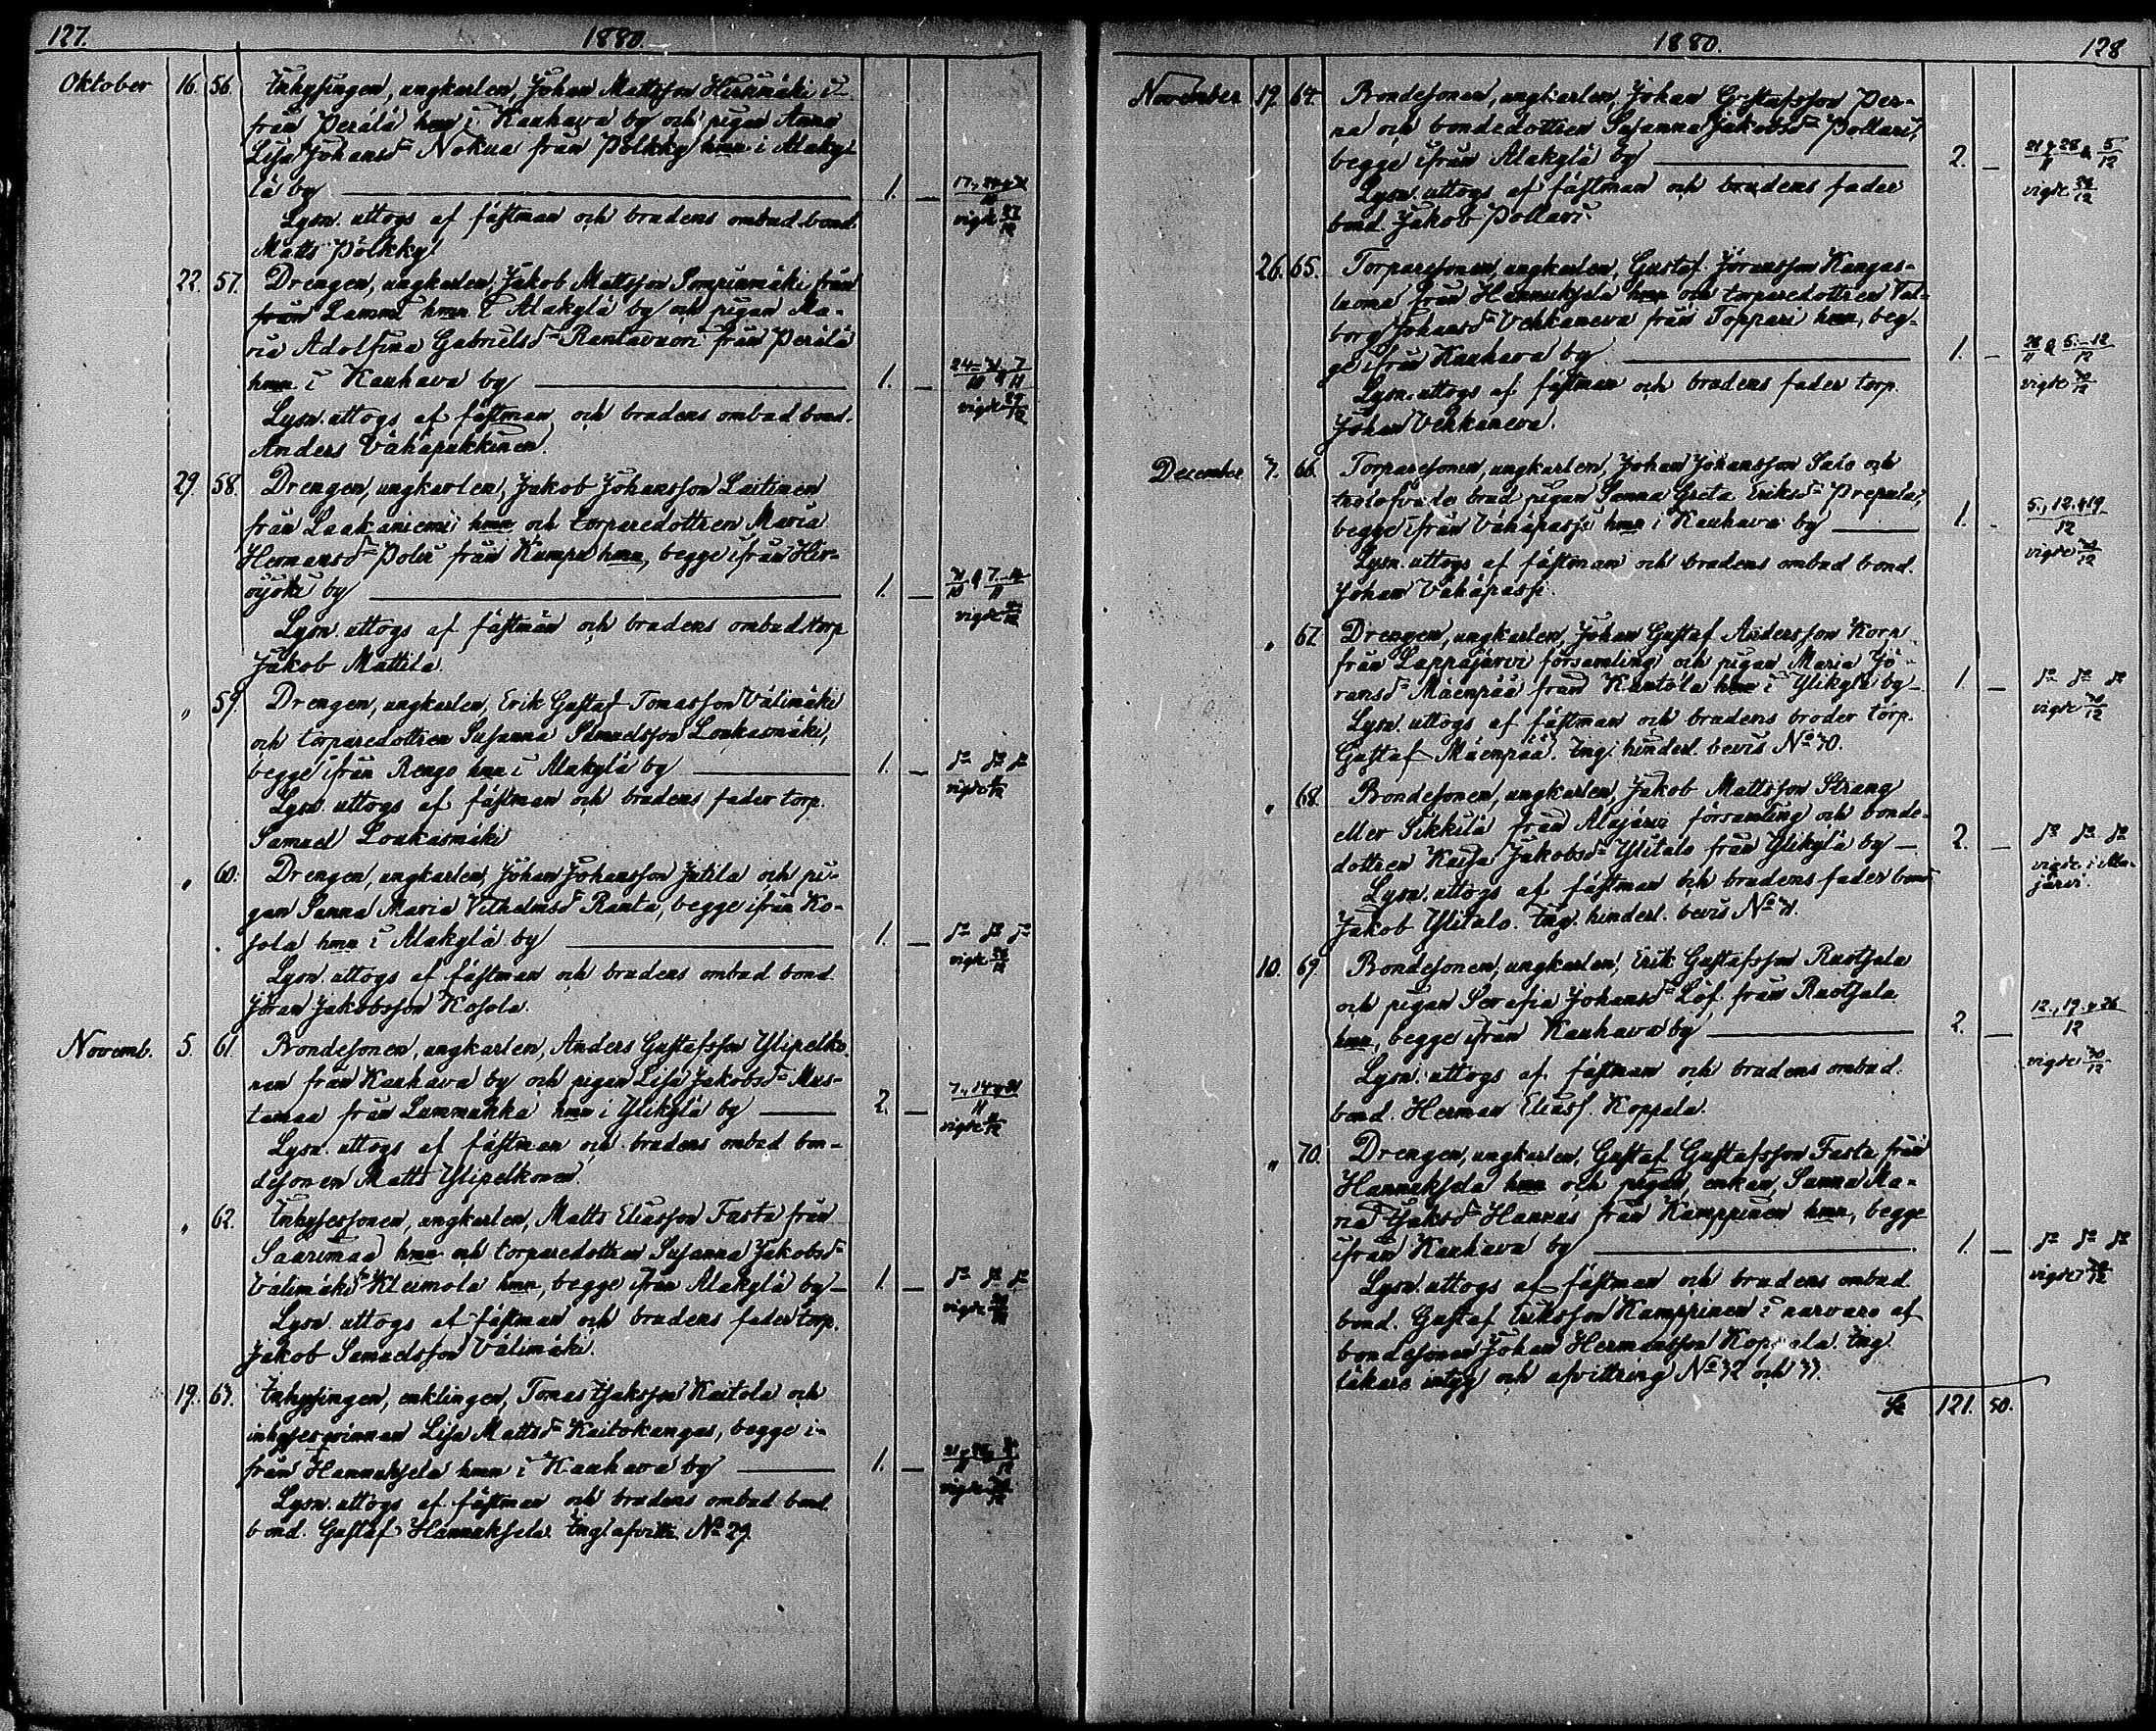 127. 1880.
Oktober 16. 56. Inhysingen, ungkarlen, Johan Mattsson Hirsimäki i-
från Perälä hmn i Kauhava by och pigan Anna
Lisa Johansd:r Nokua från Pölkky hmn i Alaky-
lä by 1. — 17., 24 & 31/10
Lysn. uttogs af fästman och brudens ombud bond. vigde 27/12
Matts Pölkky.
22. 57. Drengen, ungkarlen, Jakob Mattsson från
från Lammi hmn i Alakylä by och pigan Ma-
ria Adolfina Gabrielsd:r Rantavuori från Perälä
hmn i Kauhava by 1. — 24–31/10 & 7/11
Lysn. uttogs af fästman och brudens ombud bond. vigde 29/12
Anders Vähäpakkinen.
29. 58. Drengen, ungkarlen, Jakob Johansson Laitinen
från Laakaniemi hmn och torparedottren Maria
Hermansd:r från Kumpu hmn, begge ifrån Hir-
vijoki by 1. — 31/10 & 7–14/11
Lysn. uttogs af fästman och brudens ombud torp. vigde
Jakob Mattila.
„ 59. Drengen, ungkarlen, Erik Gustaf Tomasson Välimäki
och torparedottren Susanna Samuelsson Loukasmäki,
begge ifrån Rengo hmn i Alakylä by 1. — d:o d:o d:o
Lysn. uttogs af fästman och brudens fader torp. vigde
Samuel Loukasmäki
„ 60. Drengen, ungkarlen, Johan Johansson Jutila och pi-
gan Sanna Maria Vilhelmsd:r Ranta, begge ifrån Ko-
sola hmn i Alakylä by 1. — d:o d:o d:o
Lysn. uttogs af fästman och brudens ombud bond. vigde
Jöran Jakobsson Kosola.
Novemb. 5. 61. Bondesonen, ungkarlen, Anders Gustafsson Ylipelko-
nen från Kauhava by och pigan Lisa Jakobsd:r Mus-
tamaa från Lummukka hmn i Ylikylä by 2. — 7., 14 & 21/11
Lysn. uttogs af fästman och brudens ombud bon- vigde
desonen Matts Ylipelkonen.
„ 62. Inhysessonen, ungkarlen, Matts Eliasson Fasta från
Saarimaa hmn och torparedottren Susanna Jakobsd:r
Välimäki Kleimola hmn, begge ifrån Alakylä by 1. — d:o d:o d:o
Lysn. uttogs af fästman och brudens fader torp. vigde
Jakob Samuelsson Välimäki.
19. 63. Inhysingen, enklingen, Tomas Isaksson Kaitola och
inhysesqvinnan Lisa Mattsd:r Kaitokangas, begge i-
från Hannuksela hmn i Kauhava by 1. —
Lysn. uttogs af fästman och brudens ombud bond. vigde
bond. Gustaf Hannuksela. Ingl. afvittr. No 29.
1880. 128
November 19. 64. Bondesonen, ungkarlen, Johan Gustafsson Per-
na och bondedottren Susanna Jakobsd:r Pollari,
begge ifrån Alakylä by 2. — 21 & 28/11 & 5/12
Lysn. uttogs af fästman och brudens fader vigde
bond. Jakob Pollari.
26. 65. Torparesonen, ungkarlen, Gustaf Jöransson Kangas-
luoma från Hannuksela hmn och torparedottren Val-
borg Johansd:r Vehkaneva från Toppari hmn, beg-
ge ifrån Kauhava by 1. — 28/11 & 5.–12/12
Lysn. uttogs af fästman och brudens fader torp. vigde 30/12
Johan Vehkaneva.
December 7. 66. Torparesonen, ungkarlen, Johan Johansson Salo och
trolofvade brud pigan Sanna Greta Eriksd:r Prepula,
begge ifrån Vähäpassi hmn i Kauhava by 1. — 5., 12. & 19/12
Lysn. uttogs af fästman och brudens ombud bond. vigde 30/12
Johan Vähäpassi.
„ 67. Drengen, ungkarlen, Johan Gustaf Andersson Korp
från Lappajärvi församling och pigan Maria Jö-
ransd:r Mäenpää från Kantola hmn i Ylikylä by 1. — d:o d:o d:o
Lysn. uttogs af fästman och brudens broder torp. vigde 30/12
Gustaf Mäenpää. Ing. hinderl. bevis No 30.
„ 68. Bondesonen, ungkarlen, Jakob Mattsson Strang
eller Sikkilä från Alajärvi församling och bonde-
dottren Kaisa Jakobsd:r Ylitalo från Ylikylä by 2. — d:o d:o d:o
Lysn. uttogs af fästman och brudens fader bond. vigde i Ala-
Jakob Ylitalo. Ing. hinderl. bevis No 31. järvi.
10. 69. Bondesonen, ungkarlen, Erik Gustafsson Ruotsala
och pigan Serafia Johansd:r Löf från Ruotsala
hmn, begge ifrån Kauhava by 2. — 12., 19. & 26/12
Lysn. uttogs af fästman och brudens ombud. vigde 30/12
bond. Herman Eliass. Koppala.
„ 70. Drengen, ungkarlen, Gustaf Gustafsson Fasta från
Hannuksela hmn och pigan, enkan, Sanna Ma-
ria Isaksd:r Hannus från Kamppinen hmn, begge
ifrån Kauhava by 1. — d:o d:o d:o
Lysn. uttogs af fästman och brudens ombud vigde
bond. Gustaf Eriksson Kamppinen i närvaro af
bondesonen Johan Hermansson Koppala. Ing.
läkare intyg och afvittring No 32 och 33.
S:a 121. 50.